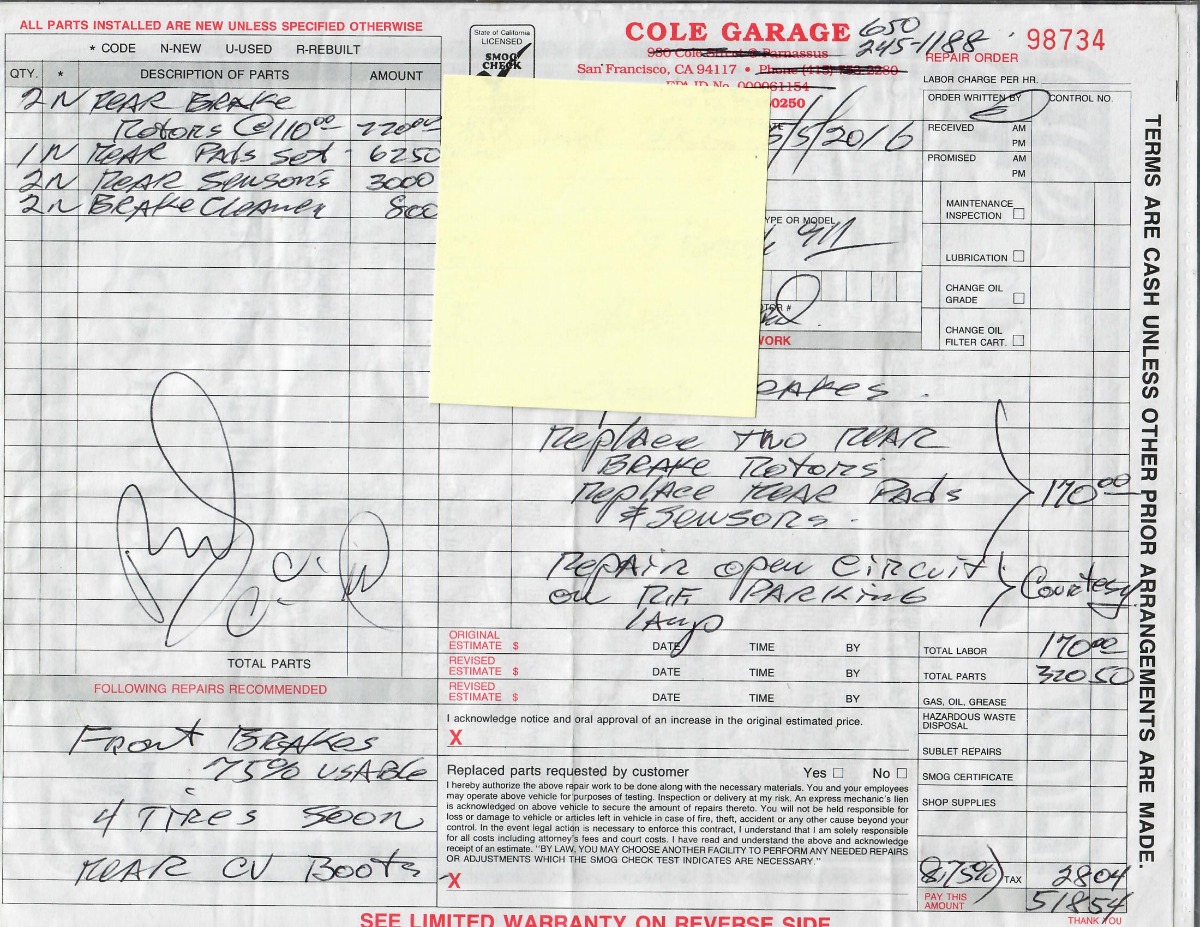 ALL PARTS INSTALLED ARE NEW UNLESS SPECIFIED OTHERWISE
* CODE N-NEW U-USED R-REBUILT
QTY. * DESCRIPTION OF PARTS AMOUNT
2 N REAR BRAKE
ROTORS @ 110 00 220 00
1 N REAR PADS SET 62 50
2 N REAR SENSORS 30 00
2 N BRAKE CLEANER 8 00
TOTAL PARTS
FOLLOWING REPAIRS RECOMMENDED
FRONT BRAKES
75% USABLE
4 TIRES SOON
REAR CV BOOTS
State of California
LICENSED
SMOG
CHECK
COLE GARAGE
650
245-1188
98734
980 Cole Street @ Parnassus
San Francisco, CA 94117 • Phone (415) 753-2280
EPA ID No. 000061154
0250
REPAIR ORDER
LABOR CHARGE PER HR.
ORDER WRITTEN BY
CONTROL NO.
5/5/2016
RECEIVED AM
PM
PROMISED AM
PM
MAINTENANCE
INSPECTION
YPE OR MODEL
911
LUBRICATION
CHANGE OIL
GRADE
TOR #
CHANGE OIL
FILTER CART.
WORK
RAKES.
REPLACE TWO REAR
BRAKE ROTORS
REPLACE REAR PADS 170 00
& SENSORS.
REPAIR OPEN CIRCUIT
ON R.F. PARKING Courtesy
LAMP
ORIGINAL
ESTIMATE $ DATE TIME BY
REVISED
ESTIMATE $ DATE TIME BY
REVISED
ESTIMATE $ DATE TIME BY
I acknowledge notice and oral approval of an increase in the original estimated price.
X
Replaced parts requested by customer Yes No
I hereby authorize the above repair work to be done along with the necessary materials. You and your employees
may operate above vehicle for purposes of testing. Inspection or delivery at my risk. An express mechanic's lien
is acknowledged on above vehicle to secure the amount of repairs thereto. You will not be held responsible for
loss or damage to vehicle or articles left in vehicle in case of fire, theft, accident or any other cause beyond your
control. In the event legal action is necessary to enforce this contract, I understand that I am solely responsible
for all costs including attorney's fees and court costs. I have read and understand the above and acknowledge
receipt of an estimate. "BY LAW, YOU MAY CHOOSE ANOTHER FACILITY TO PERFORM ANY NEEDED REPAIRS
OR ADJUSTMENTS WHICH THE SMOG CHECK TEST INDICATES ARE NECESSARY."
X
TOTAL LABOR 170 00
TOTAL PARTS 320 50
GAS, OIL, GREASE
HAZARDOUS WASTE
DISPOSAL
SUBLET REPAIRS
SMOG CERTIFICATE
SHOP SUPPLIES
8.75% TAX 28 04
PAY THIS
AMOUNT 518 54
THANK YOU
SEE LIMITED WARRANTY ON REVERSE SIDE
TERMS ARE CASH UNLESS OTHER PRIOR ARRANGEMENTS ARE MADE.